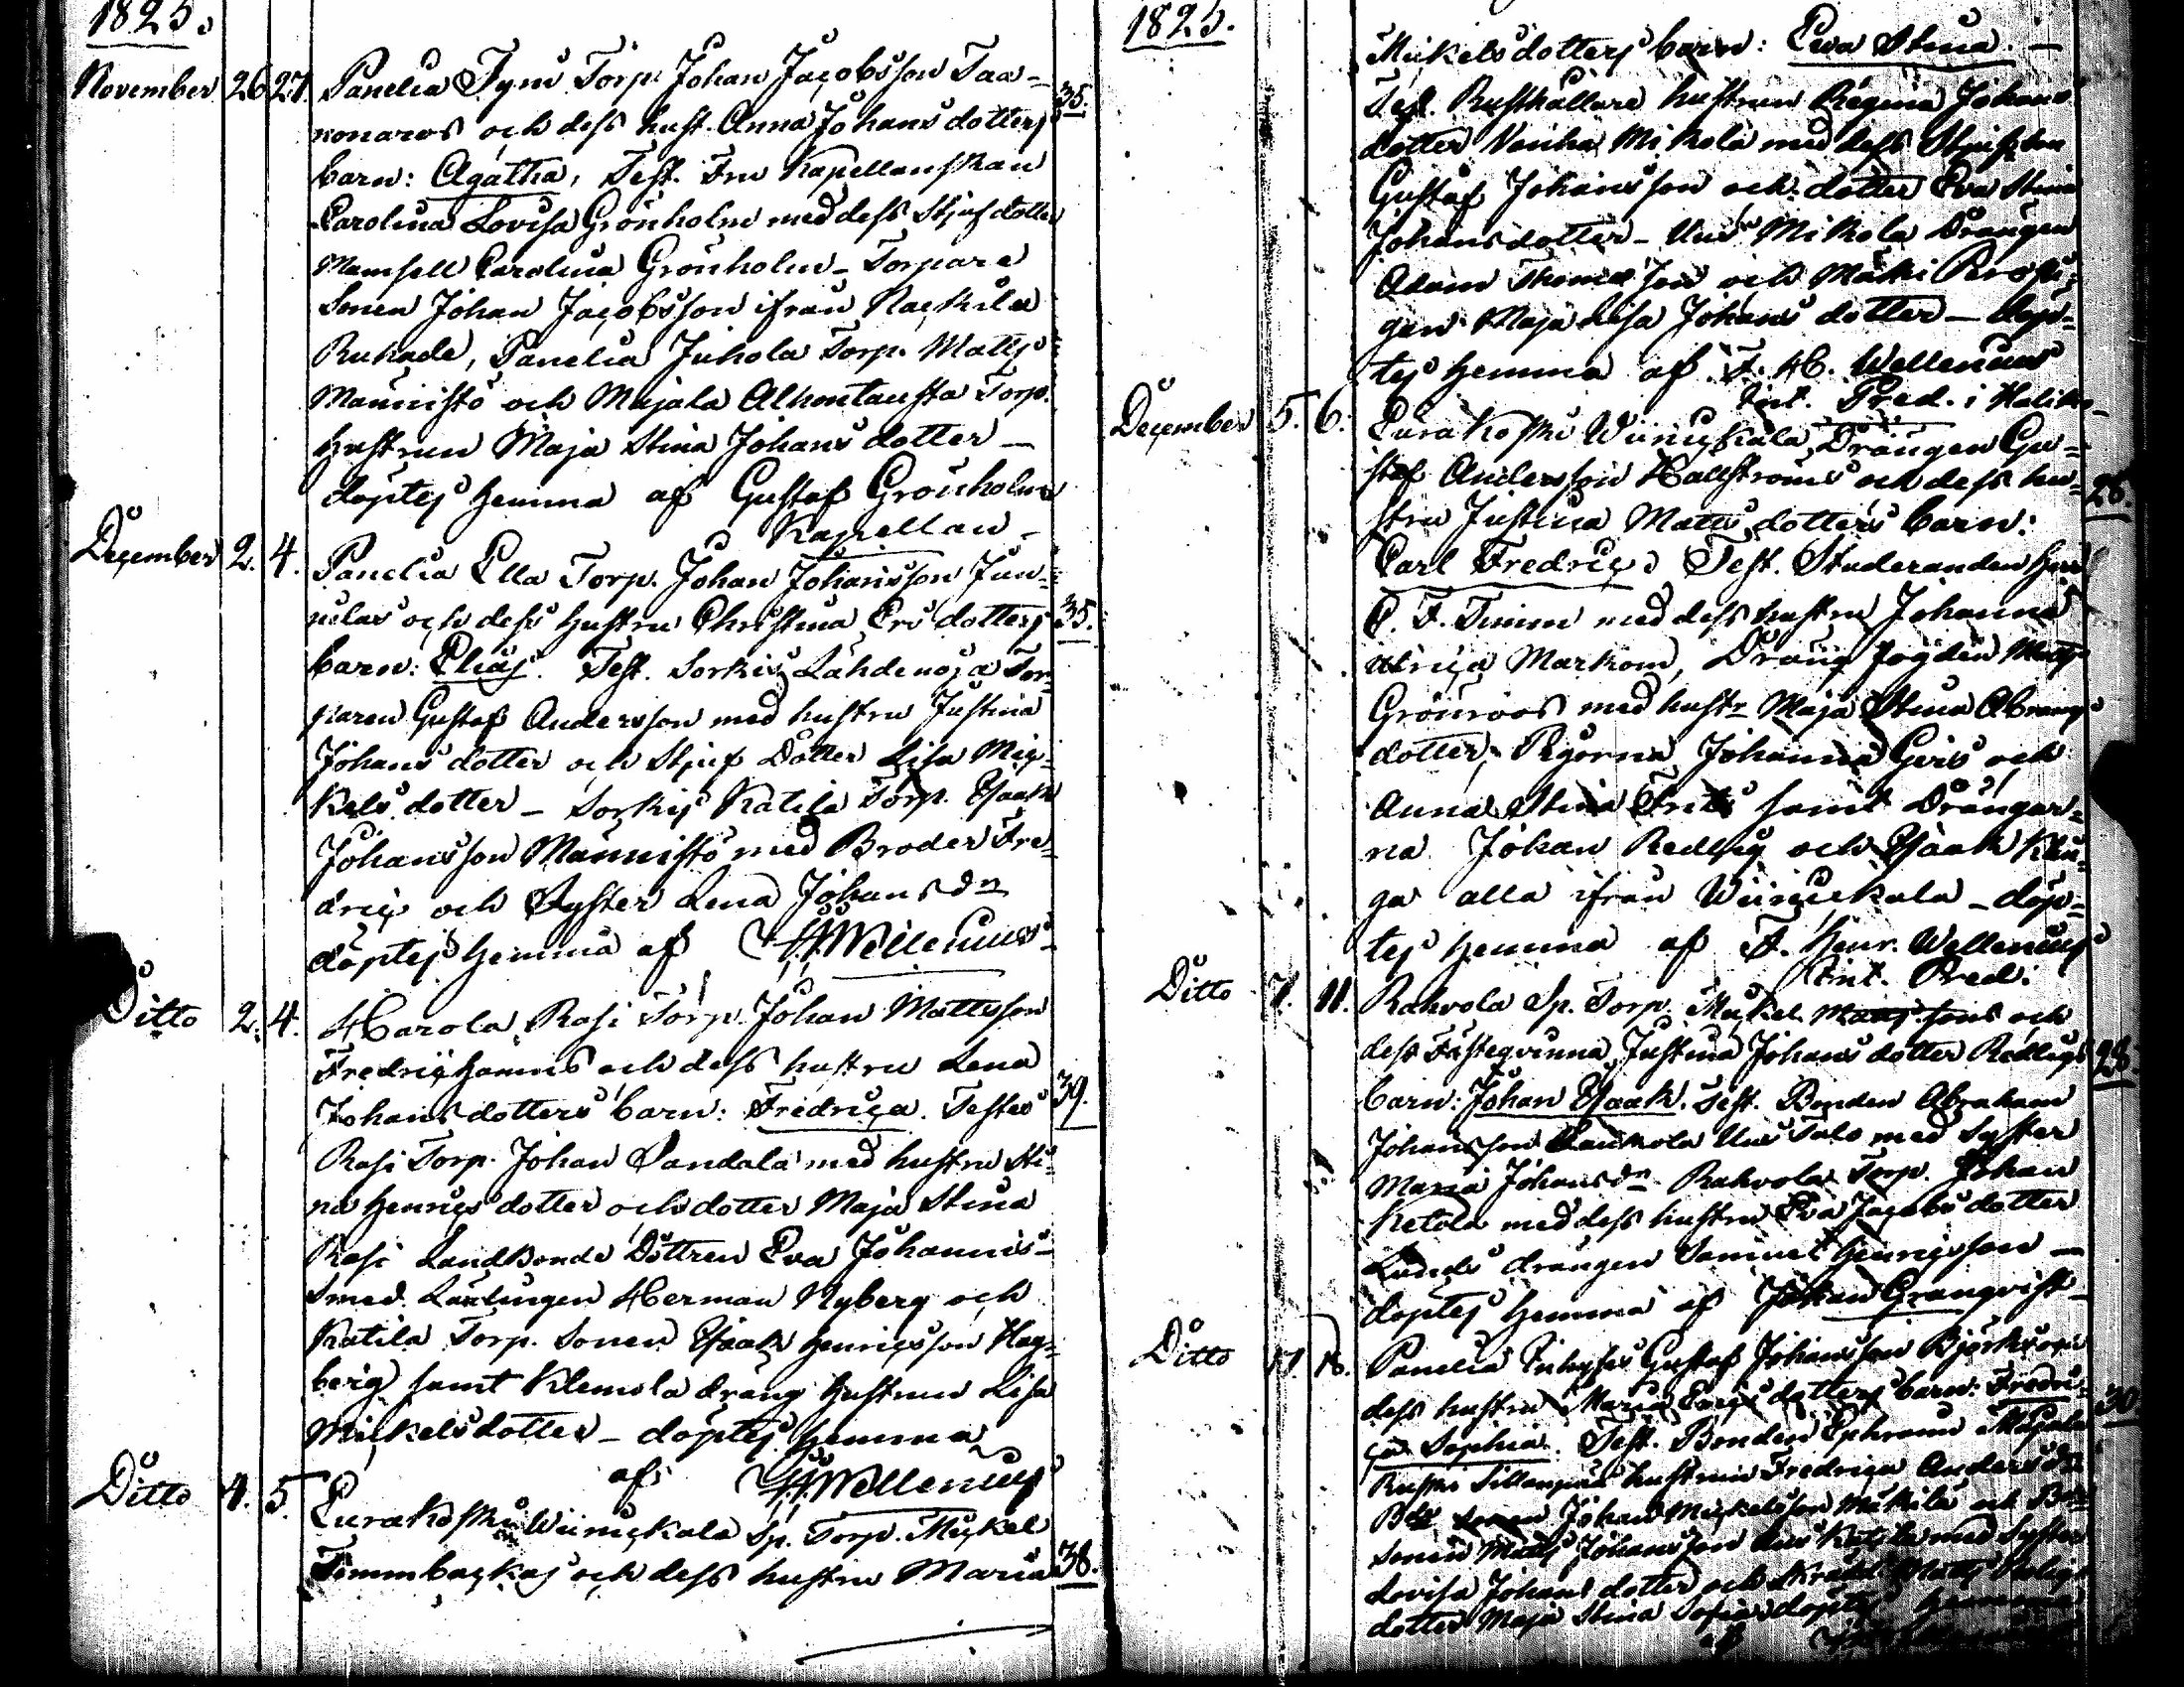 1825.
November 26 27. Panelia Tyni Torp. Johan Jacobsson Taa-
nonaros och dess hust. Anna Johans dotters 35.
barn: Agatha, Test. Fru Kapellanskan
Carolina Lovisa Grönholm med dess Stjufdotter
Mamsell Carolina Grönholm - Torpare
Sonen Johan Jacobsson ifrån Kackila
Rukade, Panelia Juhola Torp. Matts
Männistö och Majala Alhontausta Torp.
hustrun Maja Stina Johans dotter -
döptes hemma af Gustaf Grönholm
Kapellan -
December 2. 4. Panelia Ella Torp. Johan Johansson Jun-
nilas och dess hustru Christina Ers dotters 35.
barn: Elias. Test. Sorkis Lähdenoja Tor-
paren Gustaf Andersson med hustru Justina
Johans dotter och Stjuf Dotter Lisa Mic-
kels dotter - Sorkis Katila Torp. Isaak
Johansson Männistö med Broder Fre-
dric och Syster Lena Johansdr
döptes hemma af Wellenius
Ditto 2. 4. Harola Rasi Torp. Johan Mattsson
Fredrichamns och dess hustru Lena
Johansdotters barn: Fredrica. Testes 39.
Rasi Torp. Johan Sandala med hustru Sti-
na Henrics dotter och dotter Maja Stina
Rasi Landbonde Döttren Eva Johannis-
Smed Lärlingen Herman Nyberg och
Katila Torp. Sonen Isaak Henricsson Hag-
berg samt Klemola dräng hustrun Lisa
Mickelsdotter - döptes hemma
af Wellenius
Ditto 4. 5. Eurakoski Wiinickala Sp. Torp. Mickel
Timmbackas och dess hustru Maria 38.
1825.
Mickelsdotters barn: Eva Stina. -
Test. Rusthållare hustrun Regina Johans
dotter Vanha Mikola med dess Stjufson
Gustaf Johansson och dotter Eva Stina
Johansdotter - Uusi Mikola Drängen
Adam Thomasson och Mäki
gan Maja Lisa Johans dotter - döp-
tes hemma af F. H. Wellenius
Int. Pred. i Haliko -
December 5. 6. Eurakoski Wiinickala, Drängen Gu-
staf Andersson Hallströms och dess hu- 28.
stru Justina Matts dotters barn:
Carl Fredric, Test. Studeranden Herr
C. F. Timm med dess hustru Johanna
Ulrica Markom, Dräng fogden Matts
Grönroos med hustr Maja Stina Abrams
dotter, Pigorna Johanna Gers och
Anna Stina Frits samt Drängar-
na Johan Redlig och Isaak Klin-
ga alla ifrån Wiinickala - döp-
tes hemma af F. Henr. Wellenius
Int. Pred.
Ditto 7. 11. Rahvola Sp. Torp. Mickel Matts sons och
dess Fästeqvinna Justina Johans dotter Redligs 28.
barn: Johan Isaak. Test. Bonden Abraham
Johansson Laukola Uusi Talo med Syster
Maria Johansdr Rahvola Torp. Johan
Ketola med dess hustru Eva Jacobs dotter
Lunds drängen Samuel Henricsson -
döptes hemma af Johan Granqvist
Ditto 17. 18. Panelia Inhyses Gustaf Johansson Björkroos
dess hustru Maria Erics dotters barn: Fredri- 30
ca Sophia. Test. Bonden Ephraim
hustrun Fredrica Andersdr
sonen Johan Mickelsson Mäkilä och
sonen Matts Johansson Uusi Katila med Syster
Lovisa Johans dotter och Matts
dotter Maja Stina döptes hemma